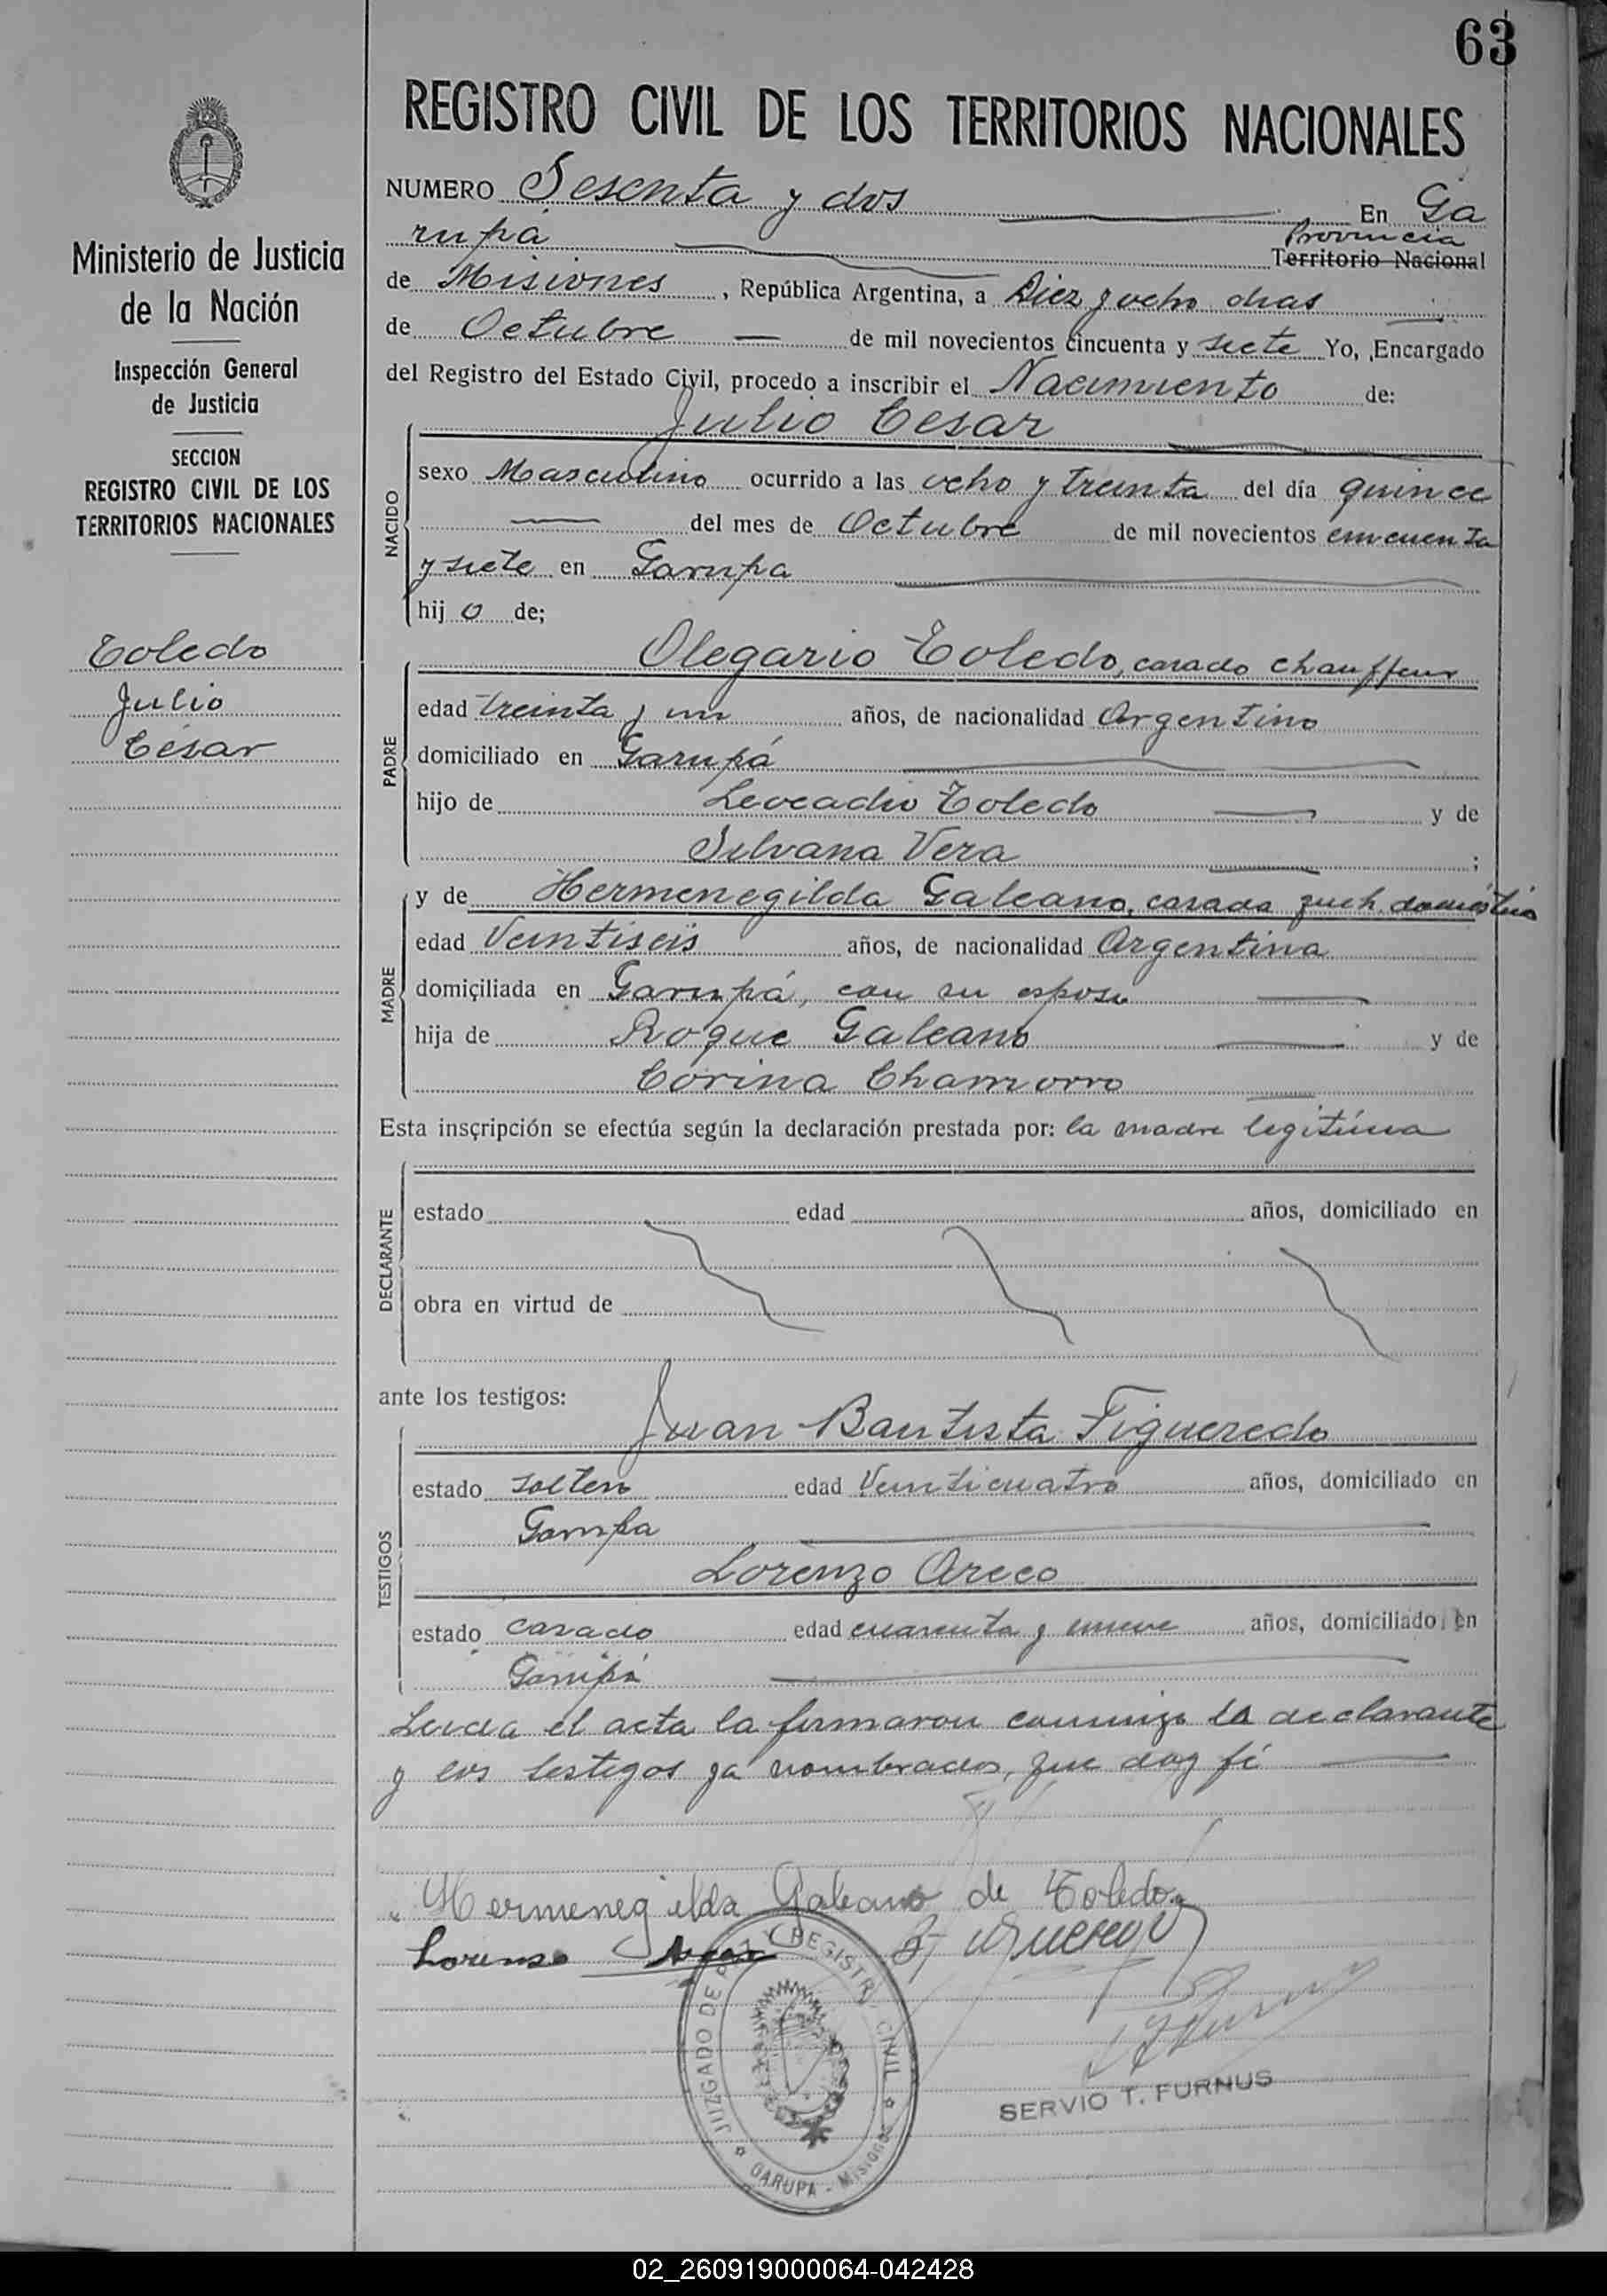 63
REGISTRO CIVIL DE LOS TERRITORIOS NACIONALES
Ministerio de Justicia
de la Nación
Inspección General
de Justicia
SECCION
REGISTRO CIVIL DE LOS
TERRITORIOS NACIONALES
Toledo
Julio
César
NUMERO Sesenta y dos En Ga
rupá Provincia
Territorio Nacional
de Misiones, República Argentina, a Diez y ocho dias
de Octubre de mil novecientos cincuenta y siete Yo, Encargado
del Registro del Estado Civil, procedo a inscribir el Nacimiento de:
Julio Cesar
NACIDO
sexo Masculino ocurrido a las ocho y treinta del día quince
del mes de Octubre de mil novecientos cincuenta
y siete en Garupa
hijo de;
Olegario Toledo, casado chauffeur
PADRE
edad treinta y un años, de nacionalidad Argentino
domiciliado en Garupá
hijo de Leocadio Toledo y de
Silvana Vera ;
y de Hermenegilda Galeano, casada
MADRE
edad Veintiseis años, de nacionalidad Argentina
domiciliada en Garupá, con su esposo
hija de Roque Galeano y de
Corina Chamorro
Esta inscripción se efectúa según la declaración prestada por: la madre legitima
DECLARANTE
estado edad años, domiciliado en
obra en virtud de
ante los testigos:
Juan Bautista Figueredo
TESTIGOS
estado soltero edad Veinticuatro años, domiciliado en
Garupa
Lorenzo Areco
estado casado edad cuarenta y nueve años, domiciliado en
Garupá
Leida el acta la firmaron conmigo la declarante
y los testigos ya nombrados, que doy fé
Hermenegilda Galeano de Toledo
Lorenso
JUZGADO DE PAZ Y REGISTRO CIVIL
GARUPA - MISIONES
SERVIO T. FURNUS
02_260919000064-042428